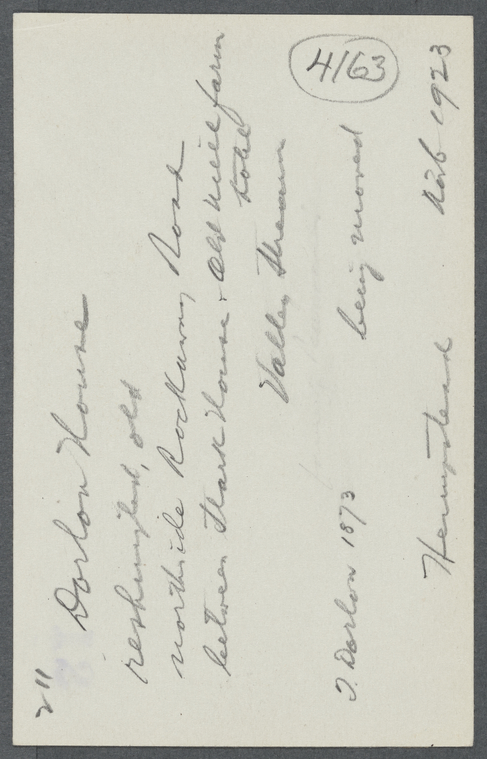 4163
2"
Dorlon House
reshingled, old
north side Rockaway Road
between Stark House + Old Mill farm
Valley Stream
T. Dorlon 1873 being moved
Hempstead 1923